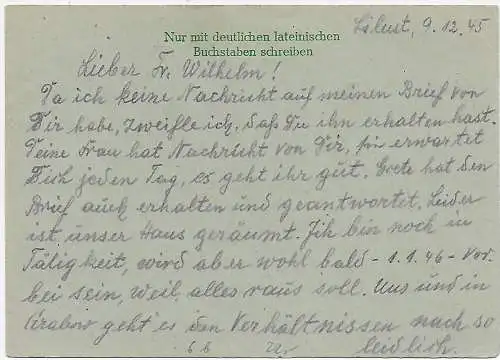 Nur mit deutlichen lateinischen
Buchstaben schreiben
9.12.45
Lieber Fr. Wilhelm!
Da ich keine Nachricht auf meinen Brief von
Dir habe, zweifle ich, daß Du ihn erhalten hast.
Deine Frau hat Nachricht von Dir, sie erwartet
Dich jeden Tag, es geht ihr gut. Grete hat den
Brief auch erhalten und geantwortet. Leider
ist unser Haus geräumt. Ich bin noch in
Tätigkeit, wird aber wohl bald - 1.1.46 - vor-
bei sein, weil alles raus soll. Uns und in
Grabow geht es den Verhältnissen nach so
leidlich.